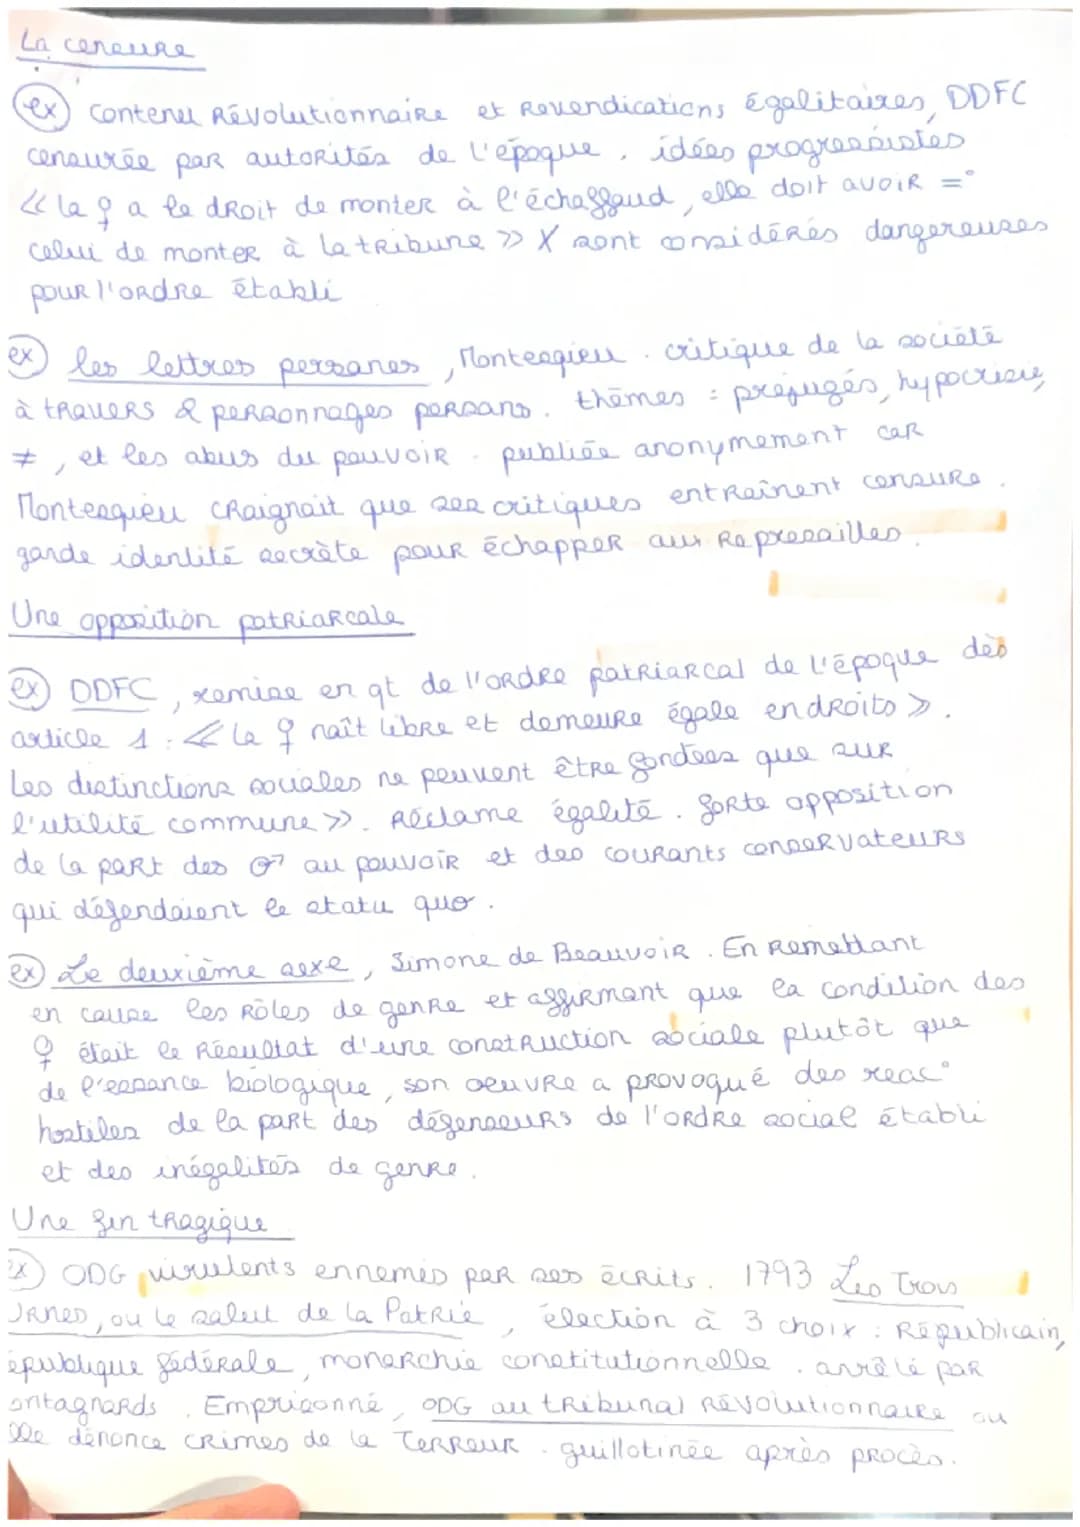 La censure
ex contenu Révolutionnaire et Revendications égalitaires, DDFC
censurée par autorités de l'époque. idées progressistes
« la ♀ a le droit de monter à l'échaffaud, elle doit avoir =°
celui de monter à la tribune » X sont considérés dangereuses
pour l'ordre établi
ex les lettres persanes, Montesquieu. critique de la société
à travers 2 personnages persans. thèmes = préjugés, hypocrisie,
≠, et les abus du pouvoir. publiée anonymement car
Montesquieu craignait que ses critiques entraînent censure.
garde identité secrète pour échapper aux Represailles.
Une opposition patriarcale
ex DDFC, remise en qt de l'ordre patriarcal de l'époque dès
article 1 : « la ♀ naît libre et demeure égale en droits ».
Les distinctions sociales ne peuvent être fondées que sur
l'utilité commune ». Réclame égalité. forte opposition
de la part des ♂ au pouvoir et des courants conservateurs
qui défendaient le statu quo.
ex Le deuxième sexe, Simone de Beauvoir. En Remettant
en cause les rôles de genre et affirmant que la condition des
♀ était le Résultat d'une construction sociale plutôt que
de l'essence biologique, son oeuvre a provoqué des reac°
hostiles de la part des défenseurs de l'ordre social établi
et des inégalités de genre.
Une fin tragique
ex ODG virulents ennemis par ses écrits. 1793 Les Trois
Urnes, ou le salut de la Patrie, élection à 3 choix : Républicain,
épublique fédérale, monarchie constitutionnelle. arrêté par
ontagnards. Emprisonné, ODG au tribunal Révolutionnaire ou
lle dénonce crimes de la Terreur. guillotinée après procès.